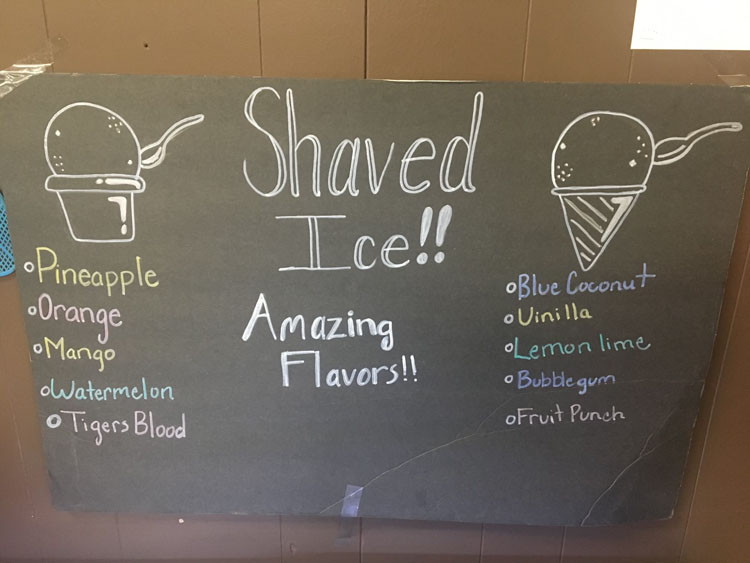 Shaved
Ice!!
Amazing
Flavors!!
Pineapple
Orange
Mango
Watermelon
Tigers Blood
Blue Coconut
Vinilla
Lemon lime
Bubblegum
Fruit Punch